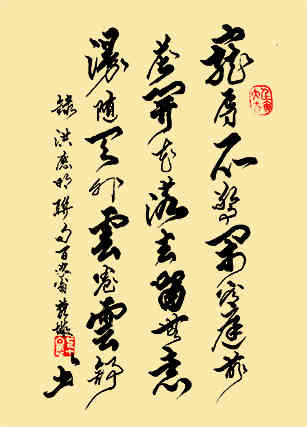 寵辱不驚閑看庭前
花開花落去留無意
漫隨天外雲卷雲舒
錄洪應明聯句百歲翁